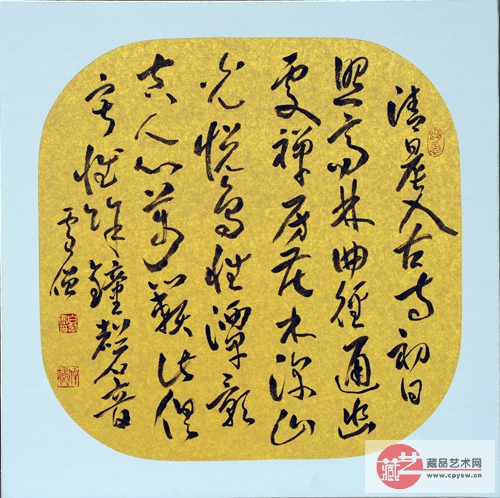 清晨入古寺初日
照高林曲徑通幽
處禪房花木深山
光悦鳥性潭影
空人心萬籟此俱
寂惟餘鐘磬音
藏艺
藏品艺术网
www.cpysw.cn